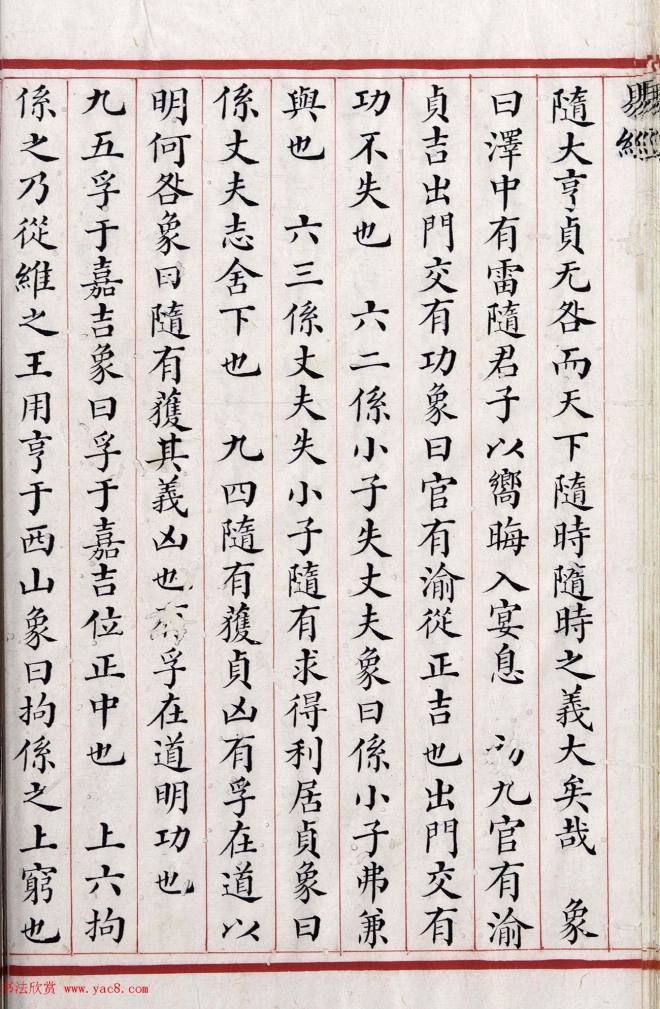 易經
隨大亨貞无咎而天下隨時隨時之義大矣哉 象
曰澤中有雷隨君子以嚮晦入宴息 初九官有渝
貞吉出門交有功象曰官有渝從正吉也出門交有
功不失也 六二係小子失丈夫象曰係小子弗兼
與也 六三係丈夫失小子隨有求得利居貞象曰
係丈夫志舍下也 九四隨有獲貞凶有孚在道以
明何咎象曰隨有獲其義凶也有孚在道明功也
九五孚于嘉吉象曰孚于嘉吉位正中也 上六拘
係之乃從維之王用亨于西山象曰拘係之上窮也
书法欣赏 www.yac8.com